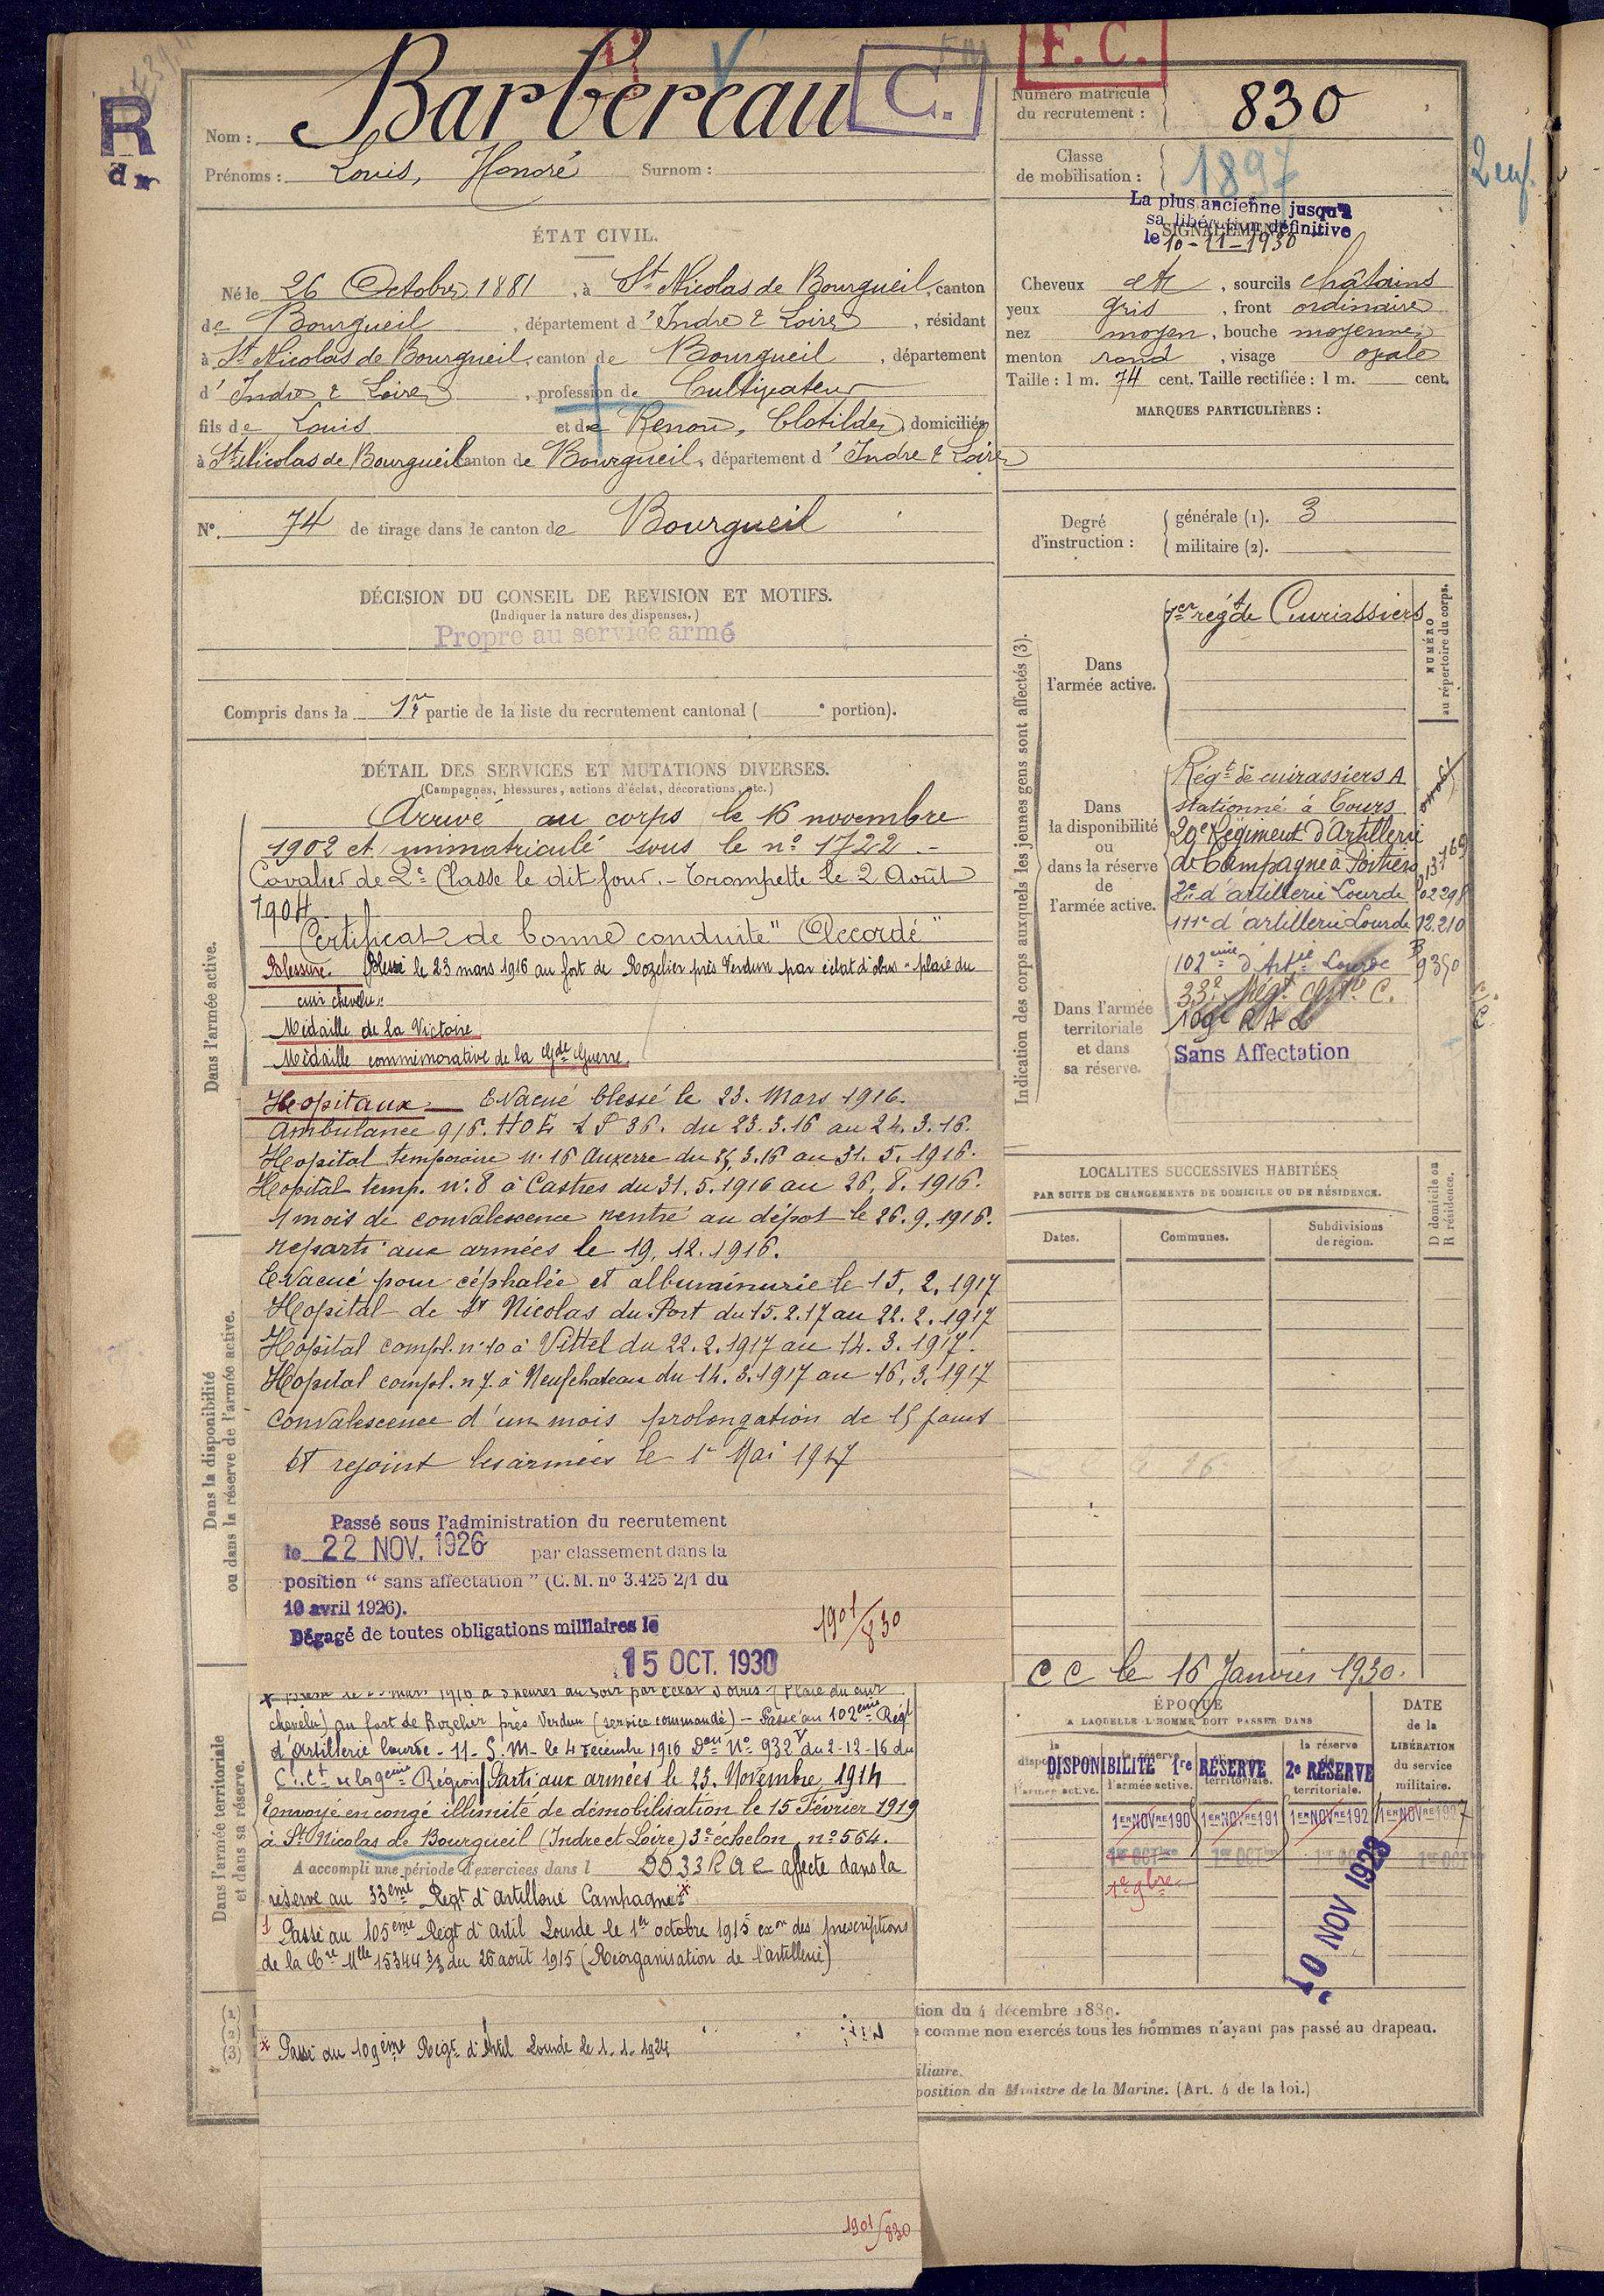 F. C.
C.
R
Nom : Barbereau
Prénoms : Louis, Honoré Surnom :
Numéro matricule
du recrutement : 830
Classe
de mobilisation : 1897
La plus ancienne jusqu'à
sa libération définitive
le 10-11-1930
SIGNALEMENT
ÉTAT CIVIL.
Né le 26 Octobre 1881, à St Nicolas de Bourgueil, canton
de Bourgueil, département d'Indre & Loire, résidant
à St Nicolas de Bourgueil, canton de Bourgueil, département
d'Indre & Loire, profession de Cultivateur
fils de Louis et de Renou, Clotilde, domiciliés
à St Nicolas de Bourgueil canton de Bourgueil, département d'Indre & Loire
Cheveux et, sourcils châtains
yeux gris, front ordinaire
nez moyen, bouche moyenne
menton rond, visage ovale
Taille : 1 m. 74 cent. Taille rectifiée : 1 m. cent.
MARQUES PARTICULIÈRES :
N° 74 de tirage dans le canton de Bourgueil
Degré
d'instruction :
générale (1). 3
militaire (2).
DÉCISION DU CONSEIL DE REVISION ET MOTIFS.
(Indiquer la nature des dispenses.)
Propre au service armé
Compris dans la 1re partie de la liste du recrutement cantonal ( e portion).
DÉTAIL DES SERVICES ET MUTATIONS DIVERSES.
(Campagnes, blessures, actions d'éclat, décorations, etc.)
Dans l'armée active.
Arrivé au corps le 16 novembre
1902 et immatriculé sous le n° 1722.-
Cavalier de 2e Classe le dit jour.- Trompette le 2 Août
1904
Certificat de bonne conduite "Accordé"
Blessure. Blessé le 23 mars 1916 au fort de Rozelier près Verdun par éclat d'obus "plaie du
cuir chevelu"
Médaille de la Victoire
Médaille commémorative de la Gde Guerre.
Hopitaux — Evacué blessé le 23. Mars 1916.
Ambulance 9/6. du 23.3.16 au 24.3.16.
Hopital temporaire n. 16 Auxerre du 25.3.16 au 31.5.1916.
Hopital temp. n. 8 à Castres du 31.5.1916 au 26.8.1916.
1 mois de convalescence rentré au dépot le 26.9.1916.
reparti aux armées le 19.12.1916.
Evacué pour céphalée et albuminurie le 15.2.1917
Hopital de St Nicolas du Port du 15.2.17 au 22.2.1917
Hopital compl. n. 10 à Vittel du 22.2.1917 au 14.3.1917.
Hopital compl. n 7. à Neufchateau du 14.3.1917 au 16.3.1917
convalescence d'un mois prolongation de 15 jours
et rejoint les armées le 1er Mai 1917
Passé sous l'administration du recrutement
le 22 NOV. 1926 par classement dans la
position "sans affectation" (C. M. n° 3.425 2/1 du
10 avril 1926).
Dégagé de toutes obligations militaires le
15 OCT. 1930
1901/830
Dans la disponibilité
ou dans la réserve de l'armée active.
Dans l'armée territoriale
et dans sa réserve.
chevelu) au fort de Rozelier près Verdun (service commandé) — Passé au 102eme Régt
d'Artillerie lourde - 11- S. M- le 4 Décembre 1916 Don N° 932 du 2-12-16 du
Ct de la 9eme Région / Parti aux armées le 23. Novembre 1914
Envoyé en congé illimité de démobilisation le 15 Février 1919
à St Nicolas de Bourgueil (Indre et Loire) 3e échelon, n° 564.
A accompli une période d'exercices dans l
DD 33 RAC affecté dans la
réserve au 33eme Régt d'Artillerie Campagne
Passé au 105eme Régt d'Artil Lourde le 1er octobre 1915 exon des prescriptions
de la Cre Mlle 15344 3/3 du 26 août 1915 (Réorganisation de l'artillerie)
x Passé au 109ème Régt d'Artil Lourde le 1.1.1924
1901/830
Indication des corps auxquels les jeunes gens sont affectés (3).
NUMÉRO
au répertoire du corps.
Dans
l'armée active.
1er régt de Cuirassiers
Dans
la disponibilité
ou
dans la réserve
de
l'armée active.
Régt de cuirassiers A
stationné à Tours
20e Régiment d'Artillerie
de Campagne à Poitiers
2e d'artillerie Lourde 02298
111e d'artillerie Lourde 12.210
102eme d'Artie Lourde 9350
Dans l'armée
territoriale
et dans
sa réserve.
33e Régt Artie C.
109e R A L
Sans Affectation
LOCALITÉS SUCCESSIVES HABITÉES
PAR SUITE DE CHANGEMENTS DE DOMICILE OU DE RÉSIDENCE.
Dates. Communes. Subdivisions
de région.
D domicile ou
R résidence.
C C le 16 Janvier 1930.
ÉPOQUE
A LAQUELLE L'HOMME DOIT PASSER DANS
DATE
de la
LIBÉRATION
du service
militaire.
DISPONIBILITÉ 1re RÉSERVE 2e RÉSERVE
la réserve
territoriale.
l'armée active.
1ER NOVRE 190 1ER NOVRE 191 1ER NOVRE 192 1ER NOVRE 1927
10 NOV 1928
tion du 4 décembre 1889.
comme non exercés tous les hommes n'ayant pas passé au drapeau.
iliaire.
position du Ministre de la Marine. (Art. 4 de la loi.)
(1)
(2)
(3)